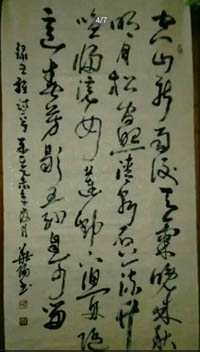 4/7
空山新雨後天氣晚來秋
明月松間照清泉石上流竹
喧歸浣女蓮動下漁舟隨
意春芳歇王孫自可留
錄王維詩